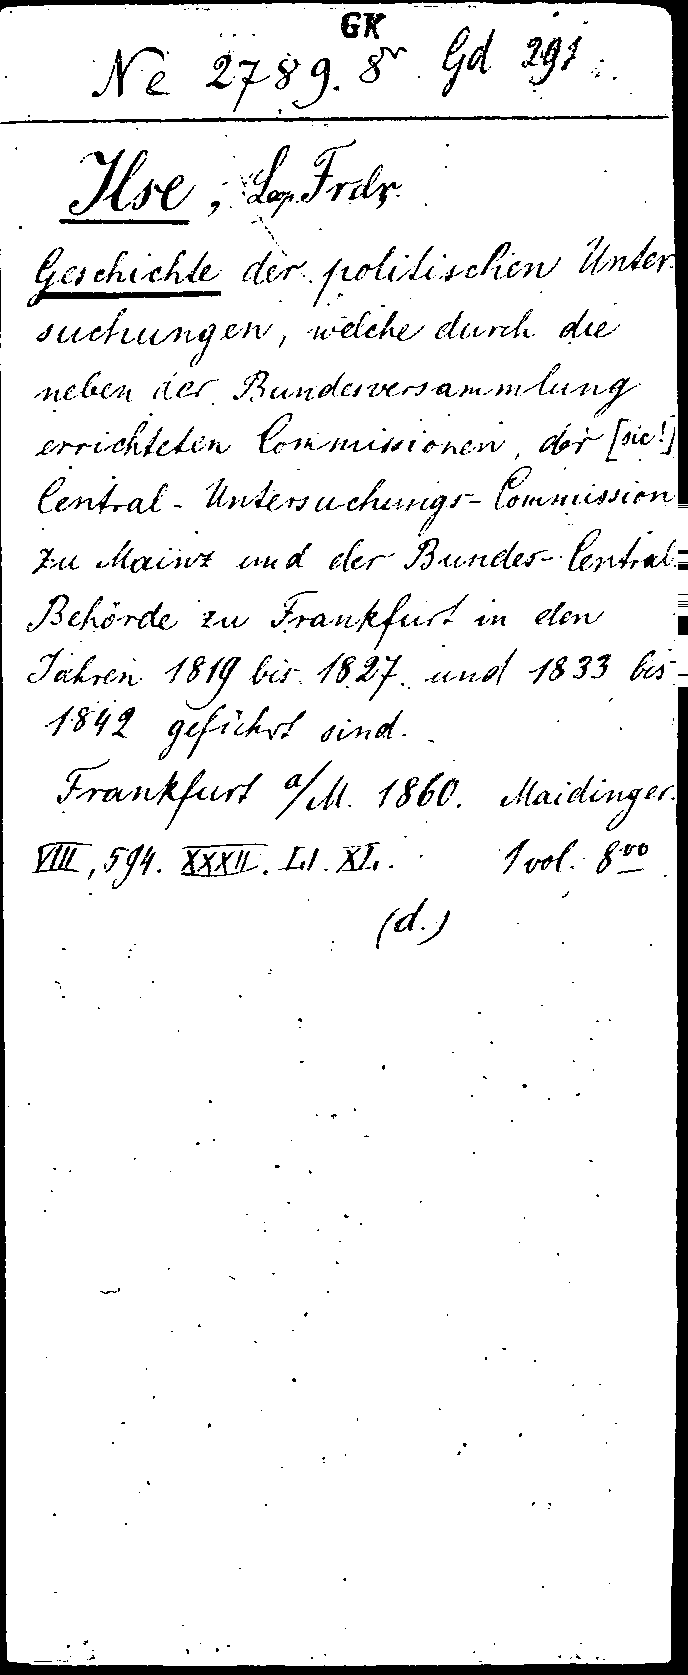 GK
Ne 2789. 8° Gd 291
Ilse, Leop. Frdr.
Geschichte der politischen Unter-
suchungen, welche durch die
neben der Bundesversammlung
errichteten Commissionen, der [sic!]
Central-Untersuchungs-Commission
zu Mainz und der Bundes-Central-
Behörde zu Frankfurt in den
Jahren 1819 bis 1827 und 1833 bis
1842 geführt sind.
Frankfurt a/M. 1860. Maidinger.
VIII, 594. XXXII. LI. XL. 1 vol. 8vo
(d.)